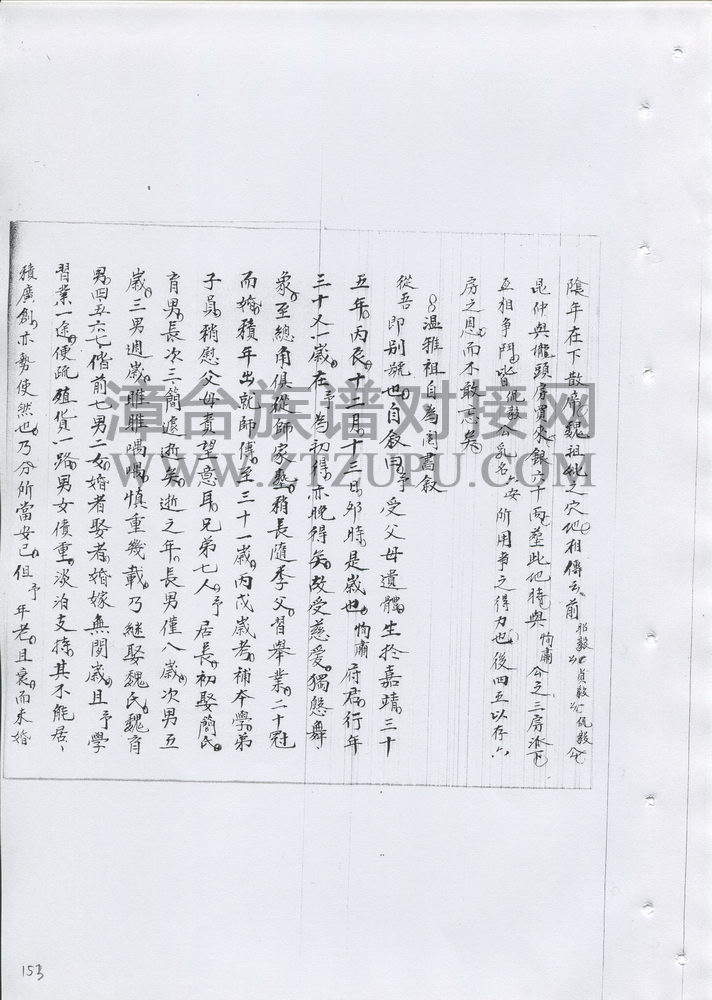 陰年在下敬 魏祖妣之穴地相傳云前
昆仲與攏頭房買來銀六十兩葬此他時與恂肅公之三房派下
互相爭鬥皆侃毅公乳名六安所用事之得力也後四五以存六
房之恩而不敢忘矣
溫雅祖自為鬮書敘
從吾即別號也自敘曰予受父母遺體生於嘉靖三十
五年丙辰十二月十三日卯時是歲也恂肅府君行年
三十又一歲在予為初得亦晚得矣故受慈愛獨慇舞
象至總角俱從師家塾稍長隨季父習舉業二十冠
而婚積年出就師傅至三十一歲丙戌歲考補本學弟
子員稍慰父母責望意耳兄弟七人予居長初娶簡氏
育男長次三簡遽逝矣逝之年長男僅八歲次男五
歲三男週歲睢睢喁喁慎重幾載乃繼娶魏氏魏育
男四五六七偕前七男二女婚者娶者婚嫁無閒歲且予學
習業一途便疏殖貨一路男女債重淡泊支持其不能居
積廣創亦勢使然也乃分所當安已但予年老且衰而未婚
153
漳台族谱对接网
WWW.ZTZUPU.COM